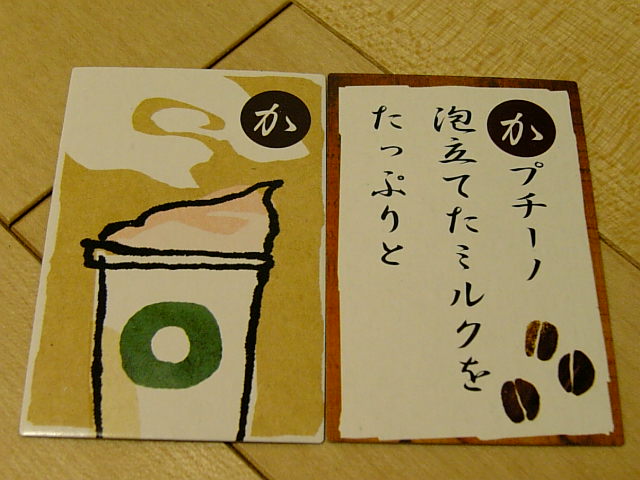 か
かプチーノ
泡立てたミルクを
たっぷりと